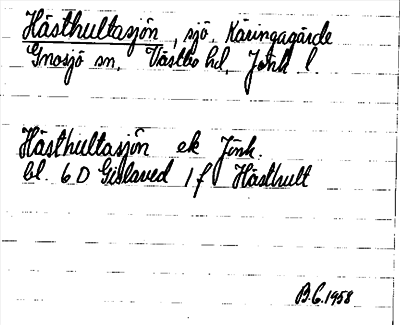 Hästhultasjön, sjö, Käringagärde
Gnosjö sn, Västbo hd, Jönk l.
Hästhultasjön ek Jönk.
bl. 6 D Gislaved 1 f Hästhult
B.G. 1958